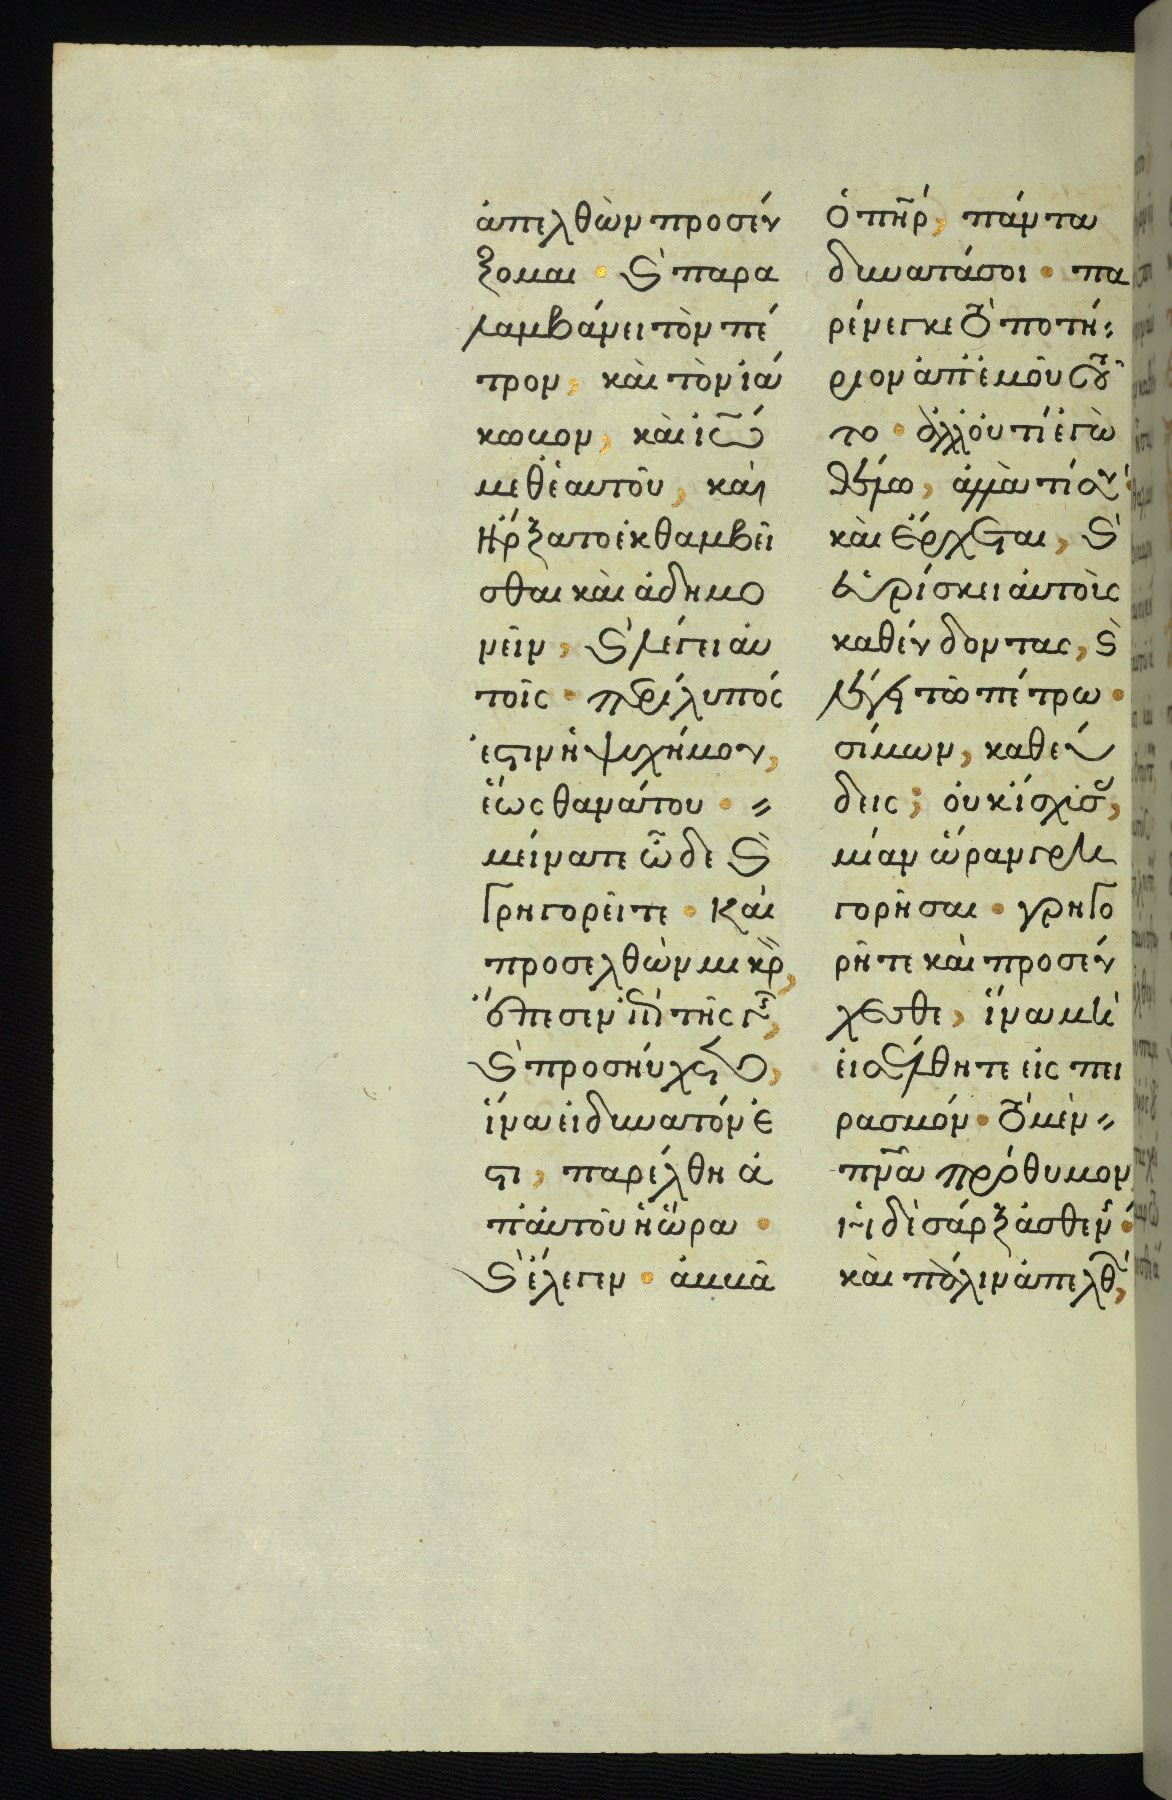 ἀπελθὼν προσεύ
ξομαι · Ϗ παρα
λαμβάνει τὸν πέ
τρον, καὶ τὸν ἰά
κωβον, καὶ ἰω
μεθ' ἑαυτοῦ, καὶ
ἤρξατο ἐκθαμβεῖ
σθαι καὶ ἀδημο
νεῖν, Ϗ λέγει αὐ
τοῖς · περίλυπός
ἐστιν ἡ ψυχή μου,
ἕως θανάτου ·
μείνατε ὧδε Ϗ
γρηγορεῖτε · καὶ
προσελθὼν μικρ,
ἔπεσεν ἐπὶ τῆς γ,
Ϗ προσηύχετο,
ἵνα εἰ δυνατόν ἐ
στι, παρέλθη ἀ
π' αὐτοῦ ἡ ὥρα ·
Ϗ ἔλεγεν · ἀββᾶ
ὁ πηρ, πάντα
δυνατά σοι · πα
ρένεγκε τὸ ποτή
ριον ἀπ' ἐμοῦ τοῦ
το · ἀλλ' οὐ τί ἐγὼ
θέλω, ἀλλὰ τί σύ ·
καὶ ἔρχεται, Ϗ
εὑρίσκει αὐτοὺς
καθεύδοντας, Ϗ
λέγει τῶ πέτρω ·
σίμων, καθεύ
δεις; οὐκ ἴσχυσ,
μίαν ὥραν γρη
γορῆσαι · γρηγο
ρεῖτε καὶ προσεύ
χεσθε, ἵνα μὴ
εἰσέλθητε εἰς πει
ρασμόν · τὸ μὲν
πνα πρόθυμον
ἡ δὲ σὰρξ ἀσθεν ·
καὶ πάλιν ἀπελθ,